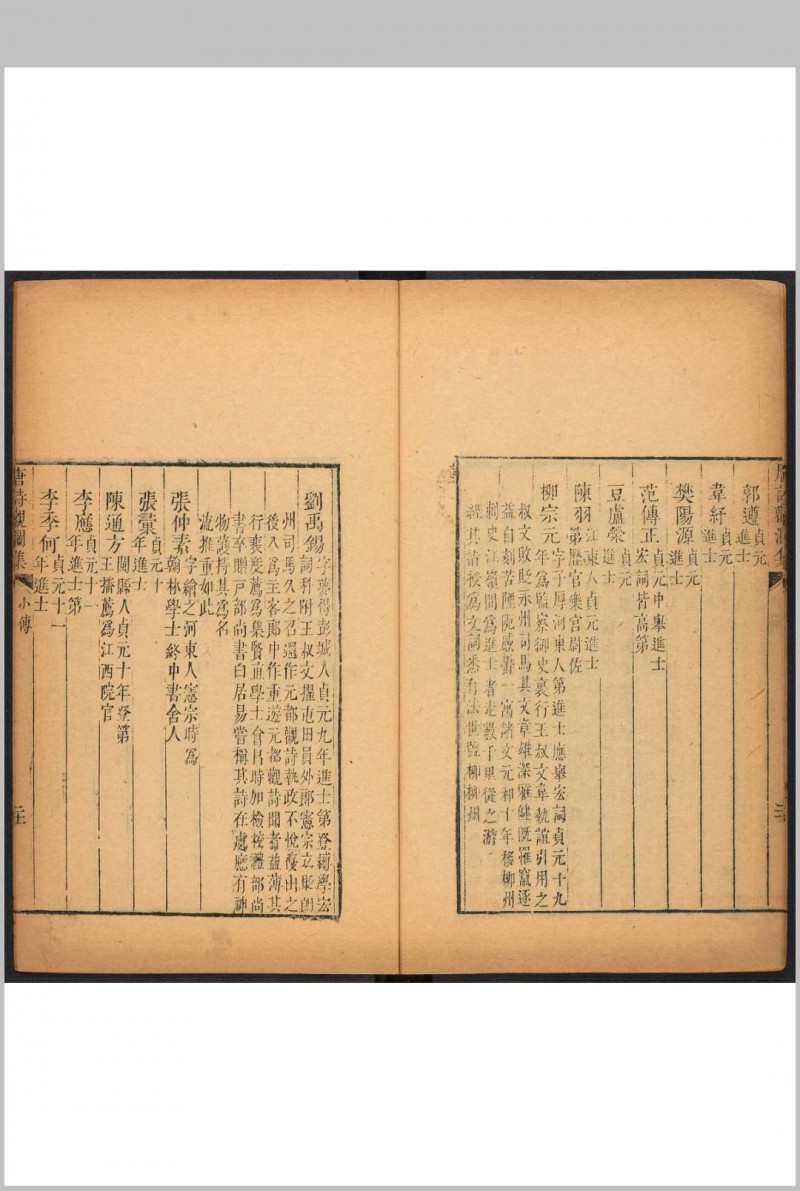 郭遵貞元
進士
韋紓貞元
進士
樊陽源貞元
進士
范傳正貞元中舉進士
宏詞皆高第
豆盧榮貞元
進士
陳羽江東人貞元進士
第歷官樂宮尉佐
柳宗元字子厚河東人第進士應舉宏詞貞元十九
年為監察御史裏行王叔文韋執誼引用之
叔文敗貶永州司馬其文章雄深雅健既罹竄逐
益自刻苦陻阨感鬱一寓諸文元和十年移柳州
刺史江嶺間為進士者走數千里從之游
經其語授為文詞悉有法世號柳柳州
劉禹錫字夢得彭城人貞元九年進士第登博學宏
詞科附王叔文擢屯田員外郎憲宗立貶朗
州司馬久之召還作元都觀詩執政不悅復出之
後入為主客郎中作重遊元都觀詩聞者益薄其
行裴度薦為集賢直學士會昌時加檢校禮部尚
書卒贈戶部尚書白居易嘗稱其詩在處應有神
物護持其為名
流推重如此
張仲素字繪之河東人憲宗時為
翰林學士終中書舍人
張彙貞元十
年進士
陳通方閩縣人貞元十年登第
王播薦為江西院官
李應貞元十一
年進士第
李季何貞元十一
年進士
唐詩觀瀾集 小傳